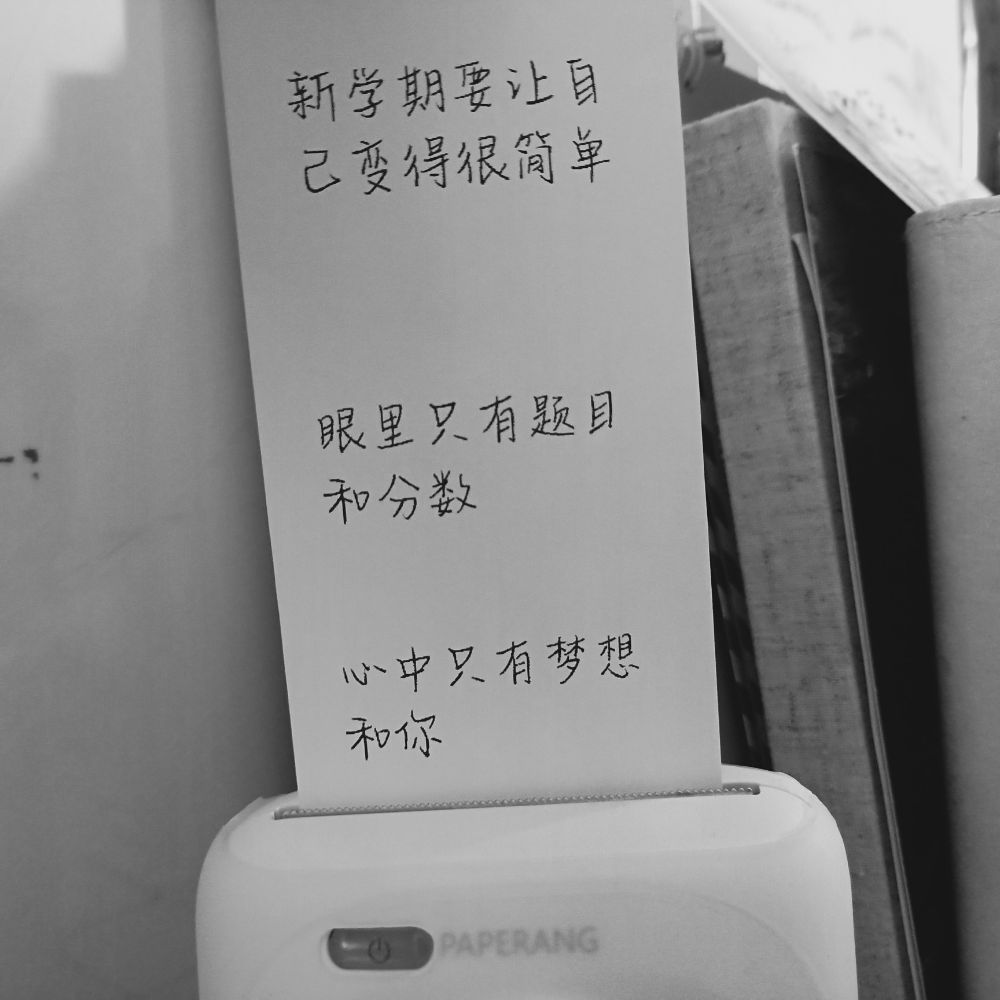 新学期要让自
己变得很简单
眼里只有题目
和分数
心中只有梦想
和你
PAPERANG